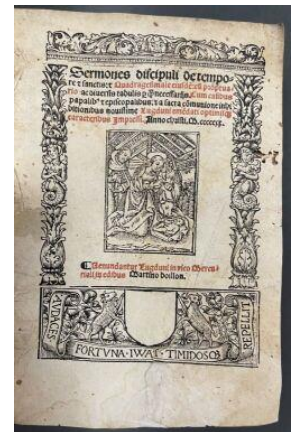 Sermones discipuli de tempo-
re et sanctis: et Quadragesimale eiusdē cū promptua-
rio: ac diuersis tabulis necessarijs. Cum casibus
papalibꝰ et episcopalibus: et a sacra cōmunione inhi-
bitionibus nouissime Lugduni emēdati optimisqꝫ
caracteribus Impressi. Anno christi. M.ccccc
Uenundantur Lugduni in vico Mercu-
riali in edibus Martino boillon.
AVDACES
FORTVNA·IVVAT·TIMIDOSQꝫ
REPELLIT